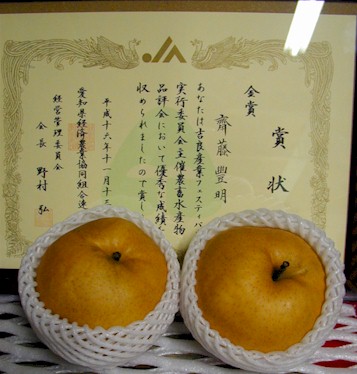 JA
賞状
金賞
齋藤豊明
あなたは吉良産業フェスティバ
実行委員会主催農畜水産物
品評会において優秀な成績を
収められましたので賞し
平成十六年十一月十三
愛知県経済農業協同組合連
経営管理委員会
会長 野村 弘